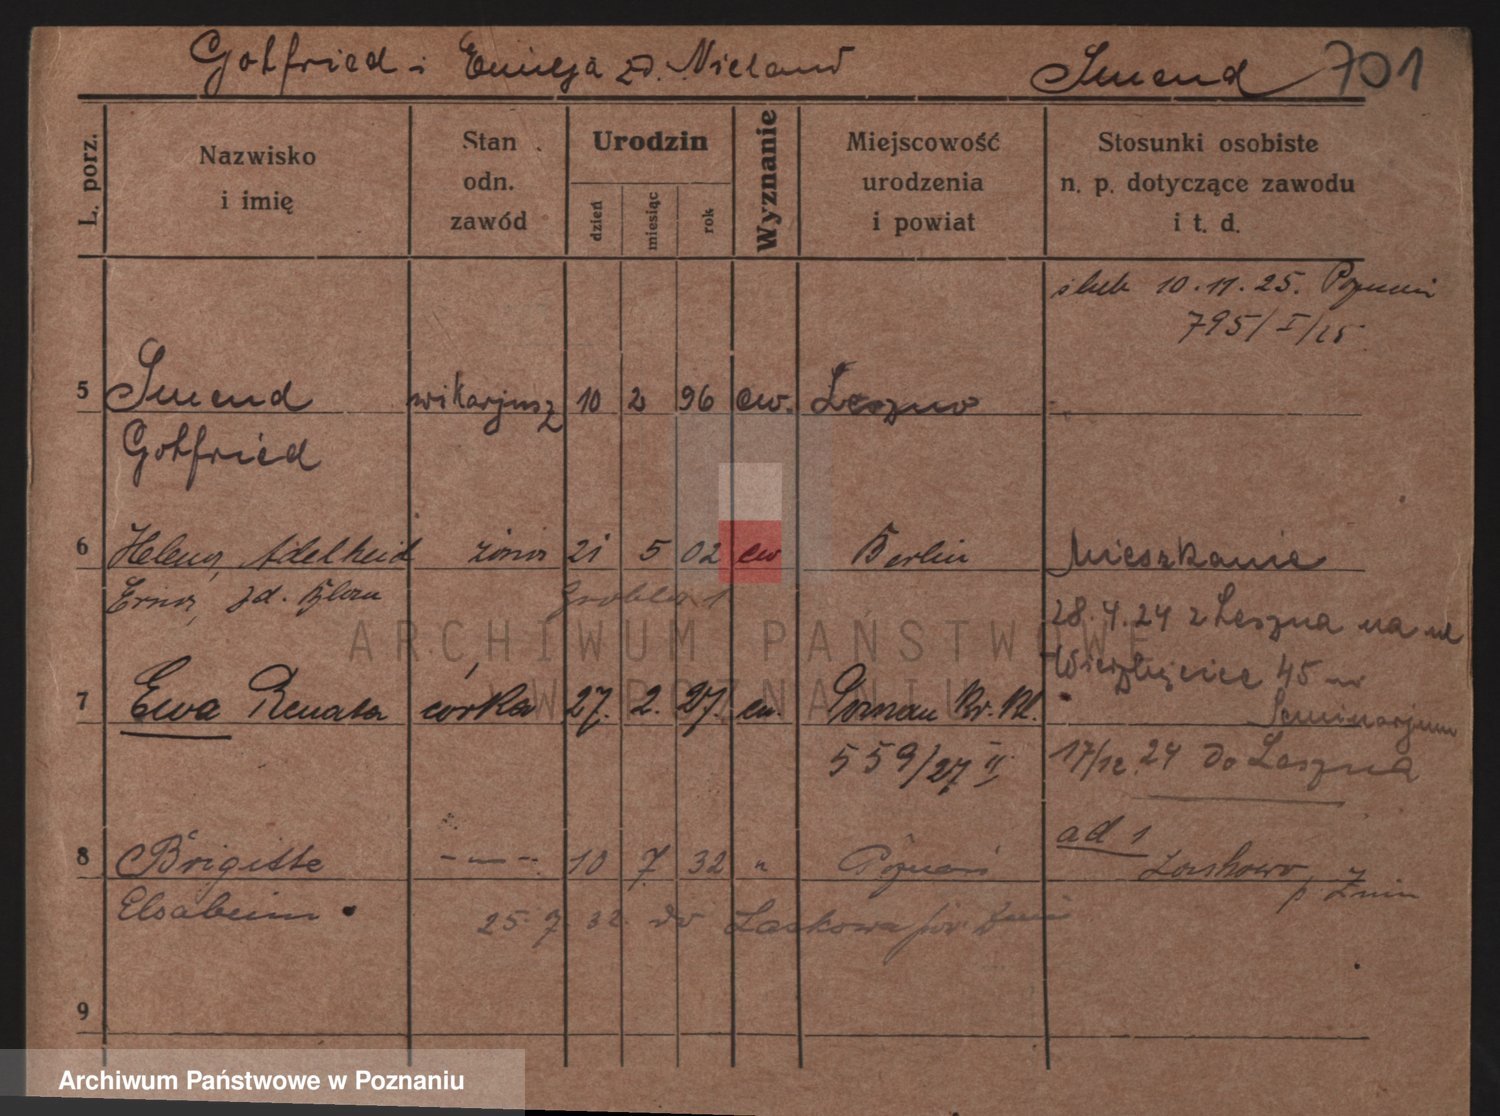 Gotfried i Emilja zd. Nieland Smend 701
L. porz.
Nazwisko i imię
Stan odn. zawód
Urodzin
dzień miesiąc rok
Wyznanie
Miejscowość urodzenia i powiat
Stosunki osobiste n. p. dotyczące zawodu i t. d.
ślub 10.11.25. Poznań
795/I/25
5 Smend wikarjusz 10 2 96 ew. Leszno
Gotfried
6 Helena, Adelheid żona 21 5 02 ew Berlin Mieszkanie
Erna, zd.
Grobla 1
28.4.24 z Leszna na ul
Wierzbięcice 45
Seminarjum
7 Ewa Renata córka 27. 2. 27. ew. Poznań
559/27 II
17/12 24 do Leszna
ad 1
8 Brigitte 10 7 32 " Poznań Laskowo
p Żnin
Elsabein
25.7.32. do Laskowa pow Żnin
9
ARCHIWUM PAŃSTWOWE
W POZNANIU
Archiwum Państwowe w Poznaniu